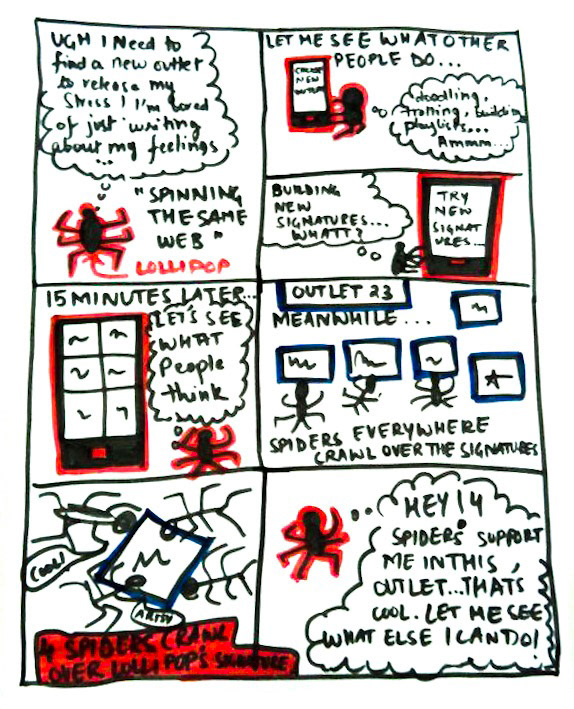 UGH I Need to
find a new outlet
to release my
Stress! I'm bored
of just writing
about my feelings
...
"SPINNING
THE SAME
WEB"
LOLLIPOP
LET ME SEE WHAT OTHER
PEOPLE DO...
NEW
doodling,
trolling, building
playlists...
Ammm...
BUILDING
NEW
SIGNATURES...
WHATT?
TRY
NEW
SIGNAT
URES...
15 MINUTES LATER...
LET'S SEE
WHAT
People
think
OUTLET 23
MEANWHILE...
SPIDERS EVERYWHERE
CRAWL OVER THE SIGNATURES
COOL!
ARTSY
4 SPIDERS CRAWL
OVER LOLLIPOP'S SIGNATURE
HEY! 4
SPIDERS SUPPORT
ME IN THIS,
OUTLET...THATS
COOL. LET ME SEE
WHAT ELSE I CAN DO!